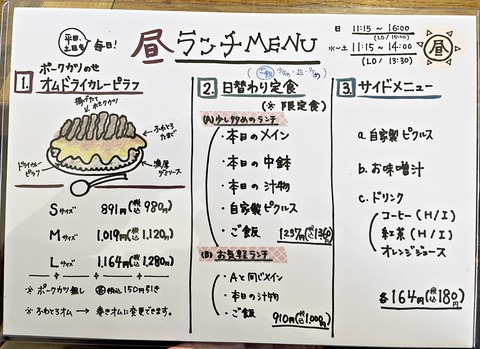 平日、土日も 毎日!
昼 ランチMENU
日 11:15 ~ 16:00
(LO/15:00)
水~土 11:15 ~ 14:00
(LO/13:30)
昼
ポークカツのせ
1. オムドライカレーピラフ
揚げたて ポークカツ
ふわとろ たまご
ドライカレー ピラフ
濃厚 デミソース
Sサイズ 891円(税込980円)
Mサイズ 1,019円(税込1,120円)
Lサイズ 1,164円(税込1,280円)
※ポークカツ無し 税込150円引き
※ふわとろオム → 巻きオムに変更できます。
2. 日替わり定食
(※ 限定食)
(A) 少し贅めのランチ
・本日のメイン
・本日の中鉢
・本日の汁物
・自家製ピクルス
・ご飯
(B) お気軽ランチ
・Aと同じメイン
・本日の汁物
・ご飯 910円(税込1,000円)
3. サイドメニュー
a. 自家製ピクルス
b. お味噌汁
c. ドリンク
コーヒー(H/I)
紅茶(H/I)
オレンジジュース
各164円(税込180円)